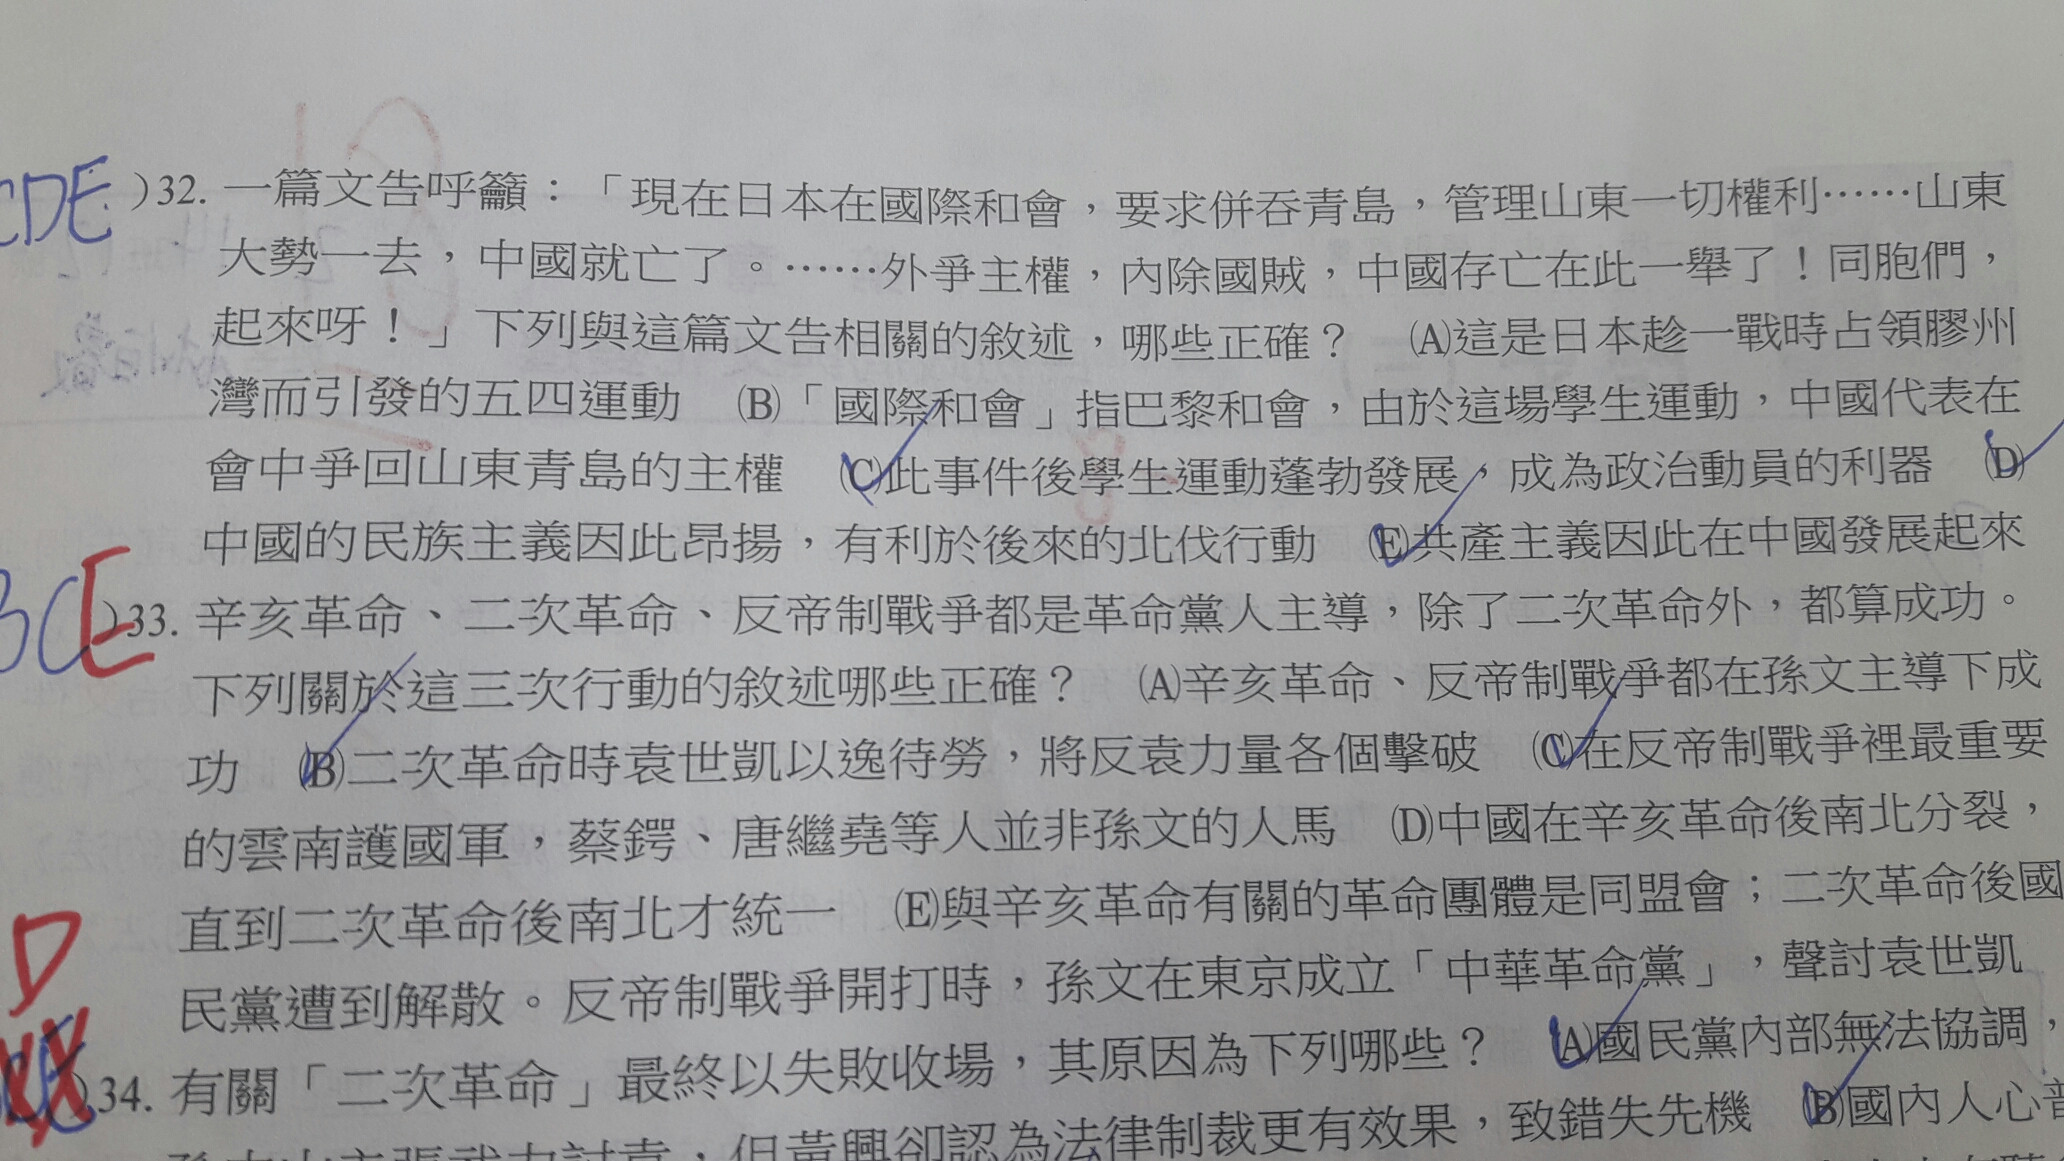 CDE )32. 一篇文告呼籲：「現在日本在國際和會，要求併吞青島，管理山東一切權利……山東
大勢一去，中國就亡了。……外爭主權，內除國賊，中國存亡在此一舉了！同胞們，
起來呀！」下列與這篇文告相關的敘述，哪些正確？ (A)這是日本趁一戰時占領膠州
灣而引發的五四運動 (B)「國際和會」指巴黎和會，由於這場學生運動，中國代表在
會中爭回山東青島的主權 (C)此事件後學生運動蓬勃發展，成為政治動員的利器 (D)
中國的民族主義因此昂揚，有利於後來的北伐行動 (E)共產主義因此在中國發展起來
BCE )33. 辛亥革命、二次革命、反帝制戰爭都是革命黨人主導，除了二次革命外，都算成功。
下列關於這三次行動的敘述哪些正確？ (A)辛亥革命、反帝制戰爭都在孫文主導下成
功 (B)二次革命時袁世凱以逸待勞，將反袁力量各個擊破 (C)在反帝制戰爭裡最重要
的雲南護國軍，蔡鍔、唐繼堯等人並非孫文的人馬 (D)中國在辛亥革命後南北分裂，
直到二次革命後南北才統一 (E)與辛亥革命有關的革命團體是同盟會；二次革命後國
民黨遭到解散。反帝制戰爭開打時，孫文在東京成立「中華革命黨」，聲討袁世凱
D
)34. 有關「二次革命」最終以失敗收場，其原因為下列哪些？ (A)國民黨內部無法協調，
孫文力主張武力討袁，但黃興卻認為法律制裁更有效果，致錯失先機 (B)國內人心